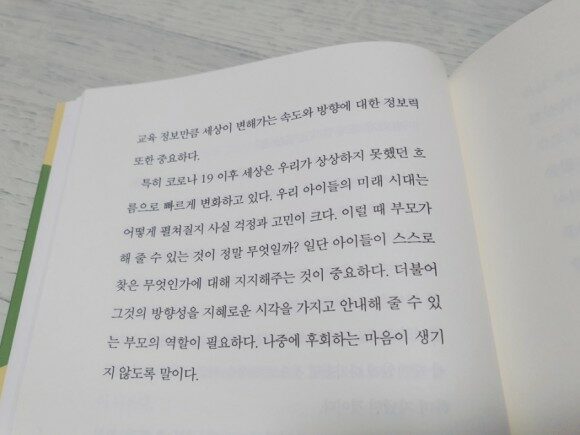 교육 정보만큼 세상이 변해가는 속도와 방향에 대한 정보력
또한 중요하다.
특히 코로나 19 이후 세상은 우리가 상상하지 못했던 흐
름으로 빠르게 변화하고 있다. 우리 아이들의 미래 시대는
어떻게 펼쳐질지 사실 걱정과 고민이 크다. 이럴 때 부모가
해 줄 수 있는 것이 정말 무엇일까? 일단 아이들이 스스로
찾은 무엇인가에 대해 지지해주는 것이 중요하다. 더불어
그것의 방향성을 지혜로운 시각을 가지고 안내해 줄 수 있
는 부모의 역할이 필요하다. 나중에 후회하는 마음이 생기
지 않도록 말이다.